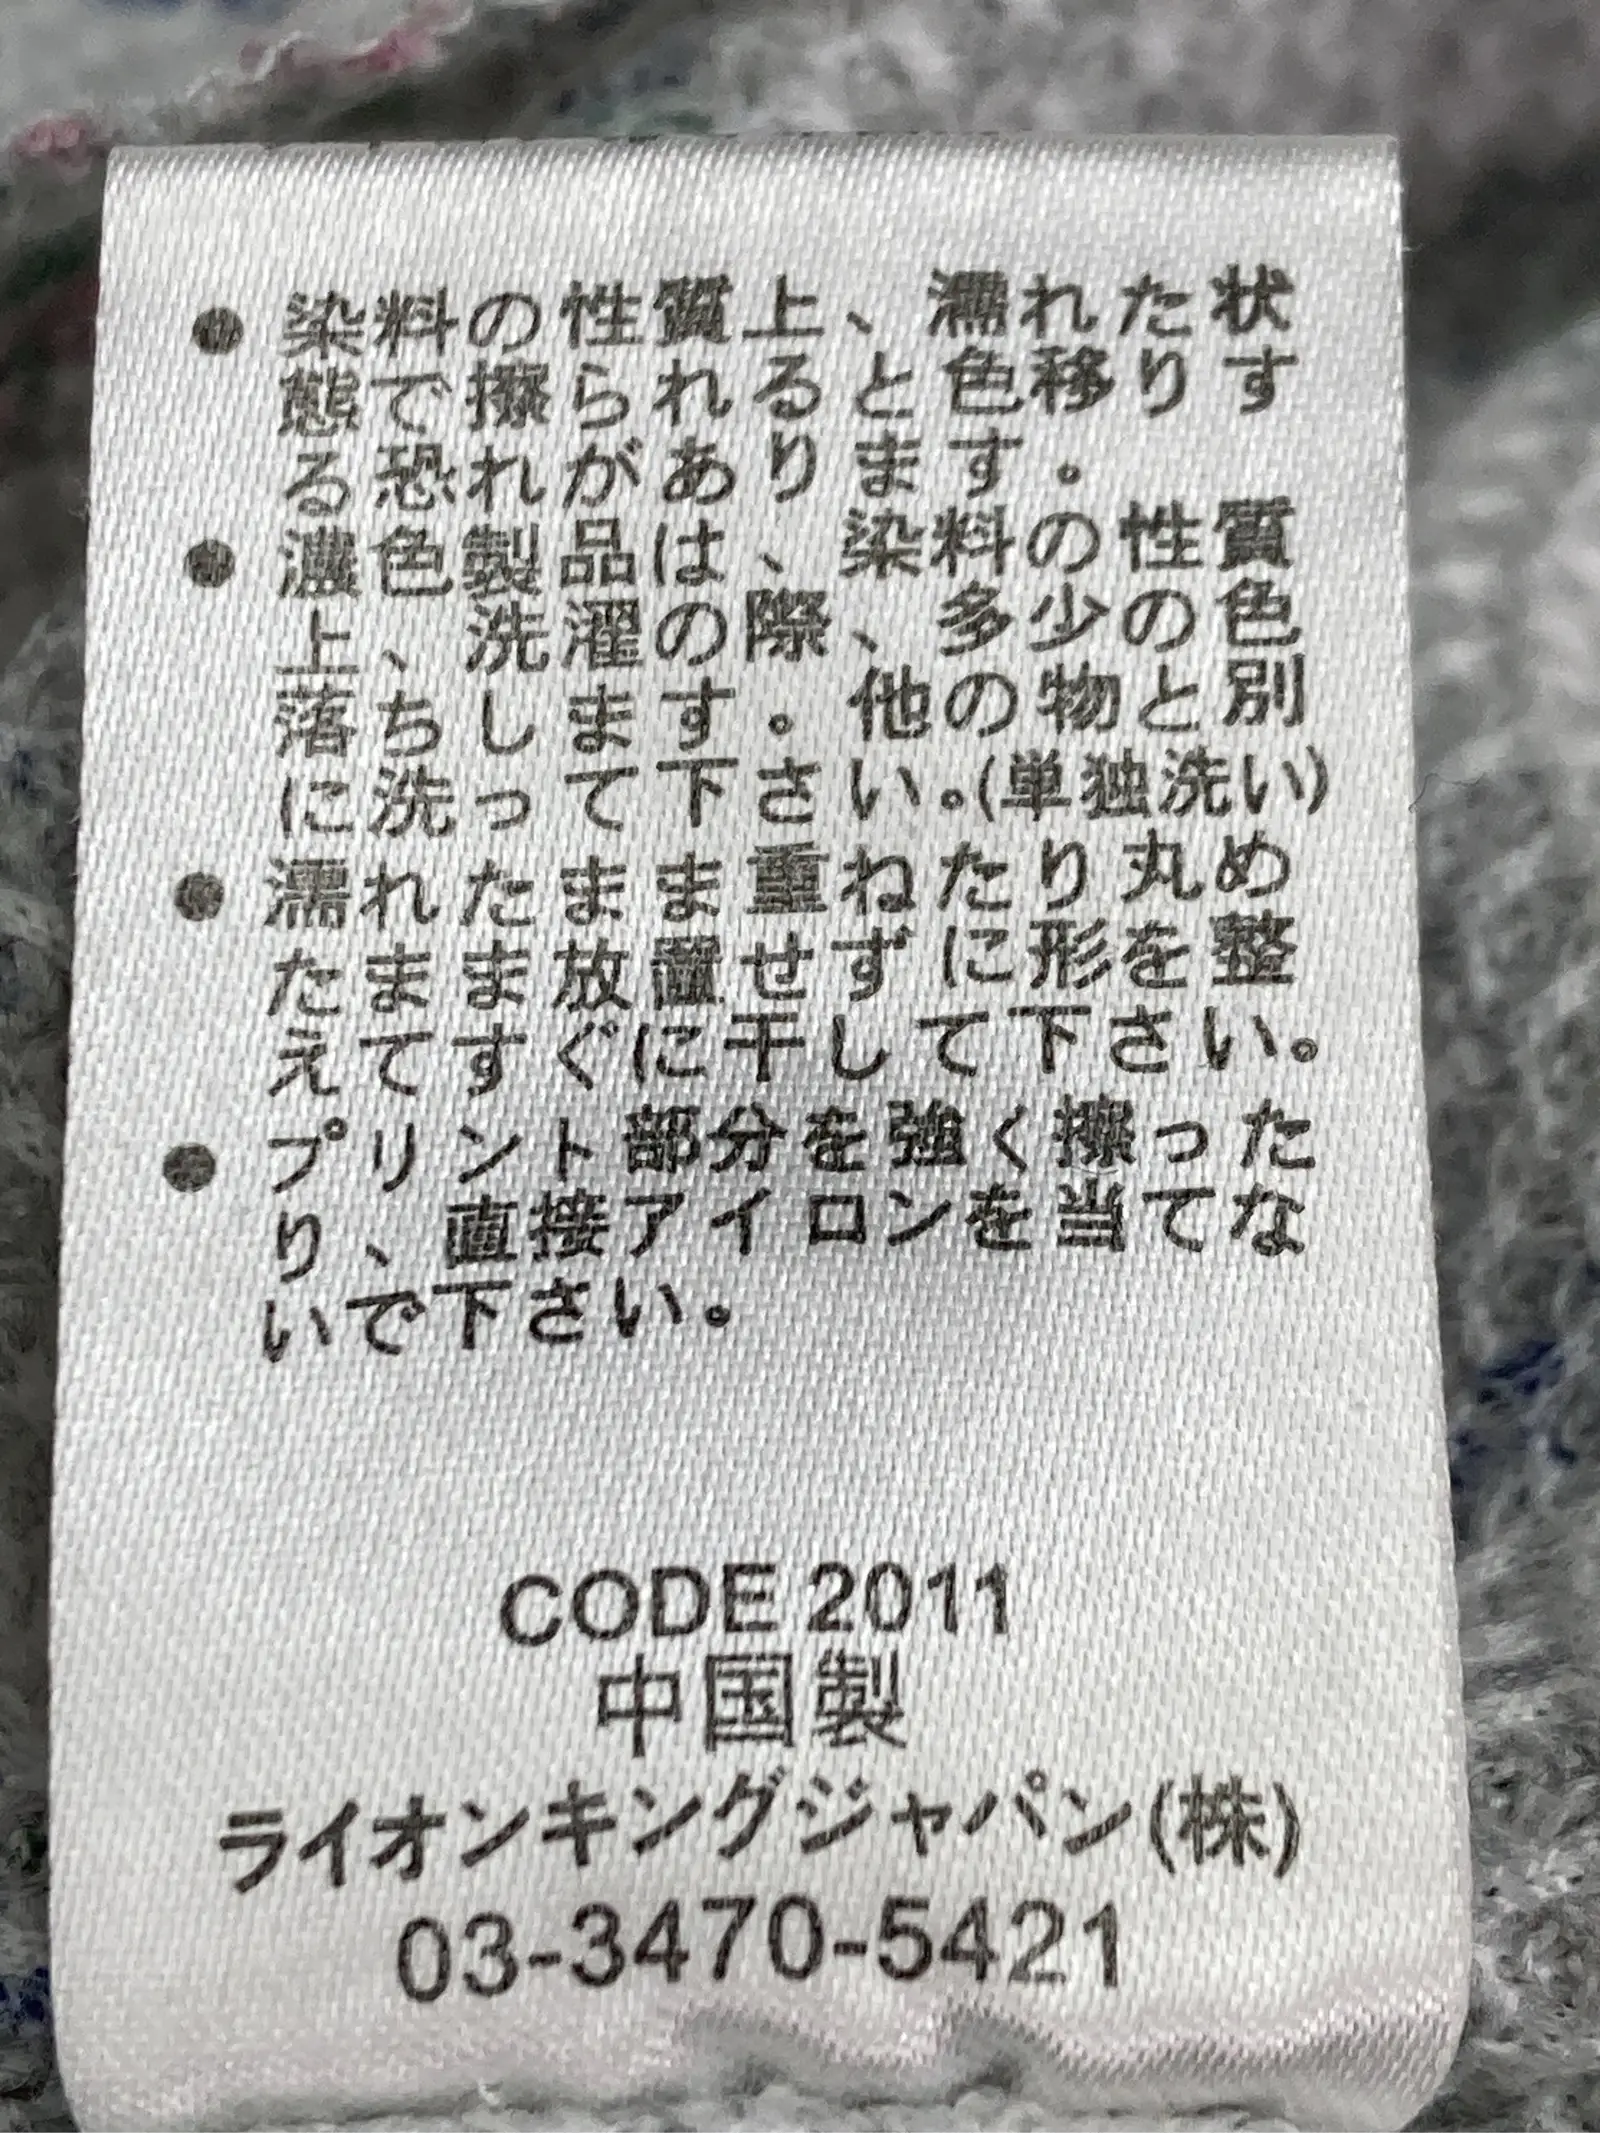 ● 染料の性質上、濡れた状
態で擦られると色移りす
る恐れがあります。
● 濃色製品は、染料の性質
上、洗濯の際、多少の色
落ちします。他の物と別
に洗って下さい。(単独洗い)
● 濡れたまま重ねたり丸め
たまま放置せずに形を整
えてすぐに干して下さい。
● プリント部分を強く擦った
り、直接アイロンを当てな
いで下さい。
CODE 2011
中国製
ライオンキングジャパン(株)
03-3470-5421